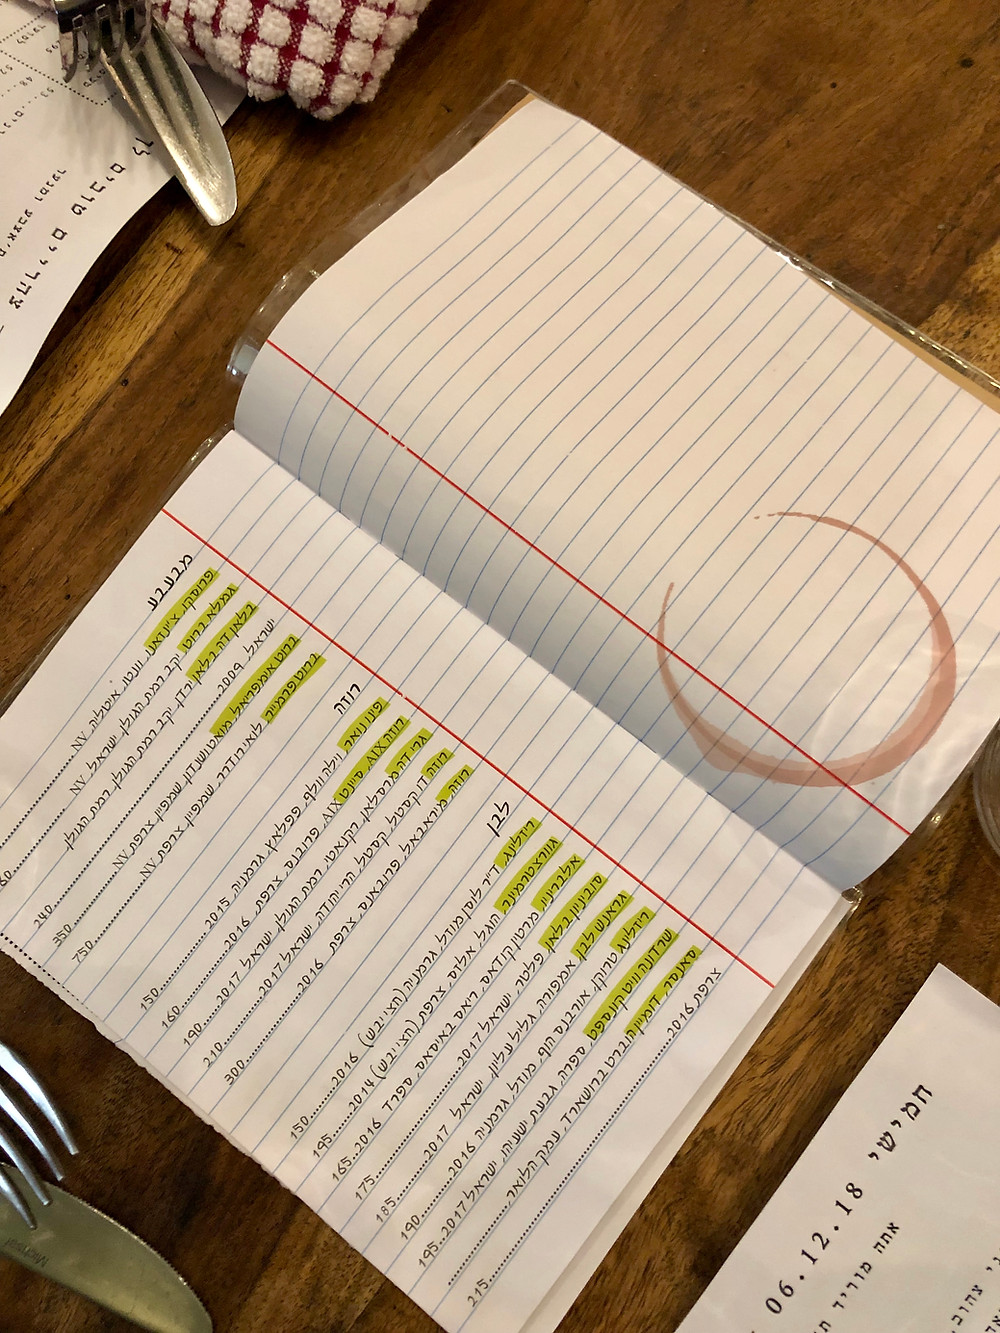 מבעבע
פרוסקו, צ'ינזאנו, ונטו, איטליה, NV
גמלא ברוט יקב רמת הגולן, ישראל, NV......60
בלאן דה בלאן ירדן יקב רמת הגולן, רמת הגולן
ישראל, 2009......240
ברוט אימפריאל מואט ושנדון, שמפיין, צרפת NV......350
ברוט פרמייר לואי רודרר, שמפיין, צרפת NV......750
רוזה
פינו נואר, וילה וולף, פפלאץ, גרמניה 2015......150
רוזה AIX, סיינט AIX, פרובנס, צרפת, 2016......160
גרי דה מרסלאן, ברקנאטי, רמת הגולן, ישראל 2017......190
רוזה דו קסטל, קסטל, הרי יהודה, ישראל 2017......210
רוזה, מיראבאל, פרובאנס, צרפת 2016......300
לבן
ריזלינג, ד"ר לוסן מוזל, גרמניה (חצי יבש) 2016......150
גוורצטרמינר, הוגל, אלזס, צרפת (חצי יבש) 2014......195
אלבריניו, מרטין קודאס, ריאס באיסאס, ספרד 2016..165
סוביניון בלאן, פלטר, ישראל 2017......175
גראנש לבן, אמפורה, גליל עליון, ישראל 2017......185
ריזלינג טרוקן, אורבנס הוף, מוזל, גרמניה 2016......190
שרדונה וויט קונספט, ספרה, גבעת ישעיהו, ישראל 2017..195
סאנסר, דומיין הוברט ברושארד, עמק הלואר,
צרפת 2016......215
צהריים טובים לך
חמישי
06.12.18
אתה מוריד